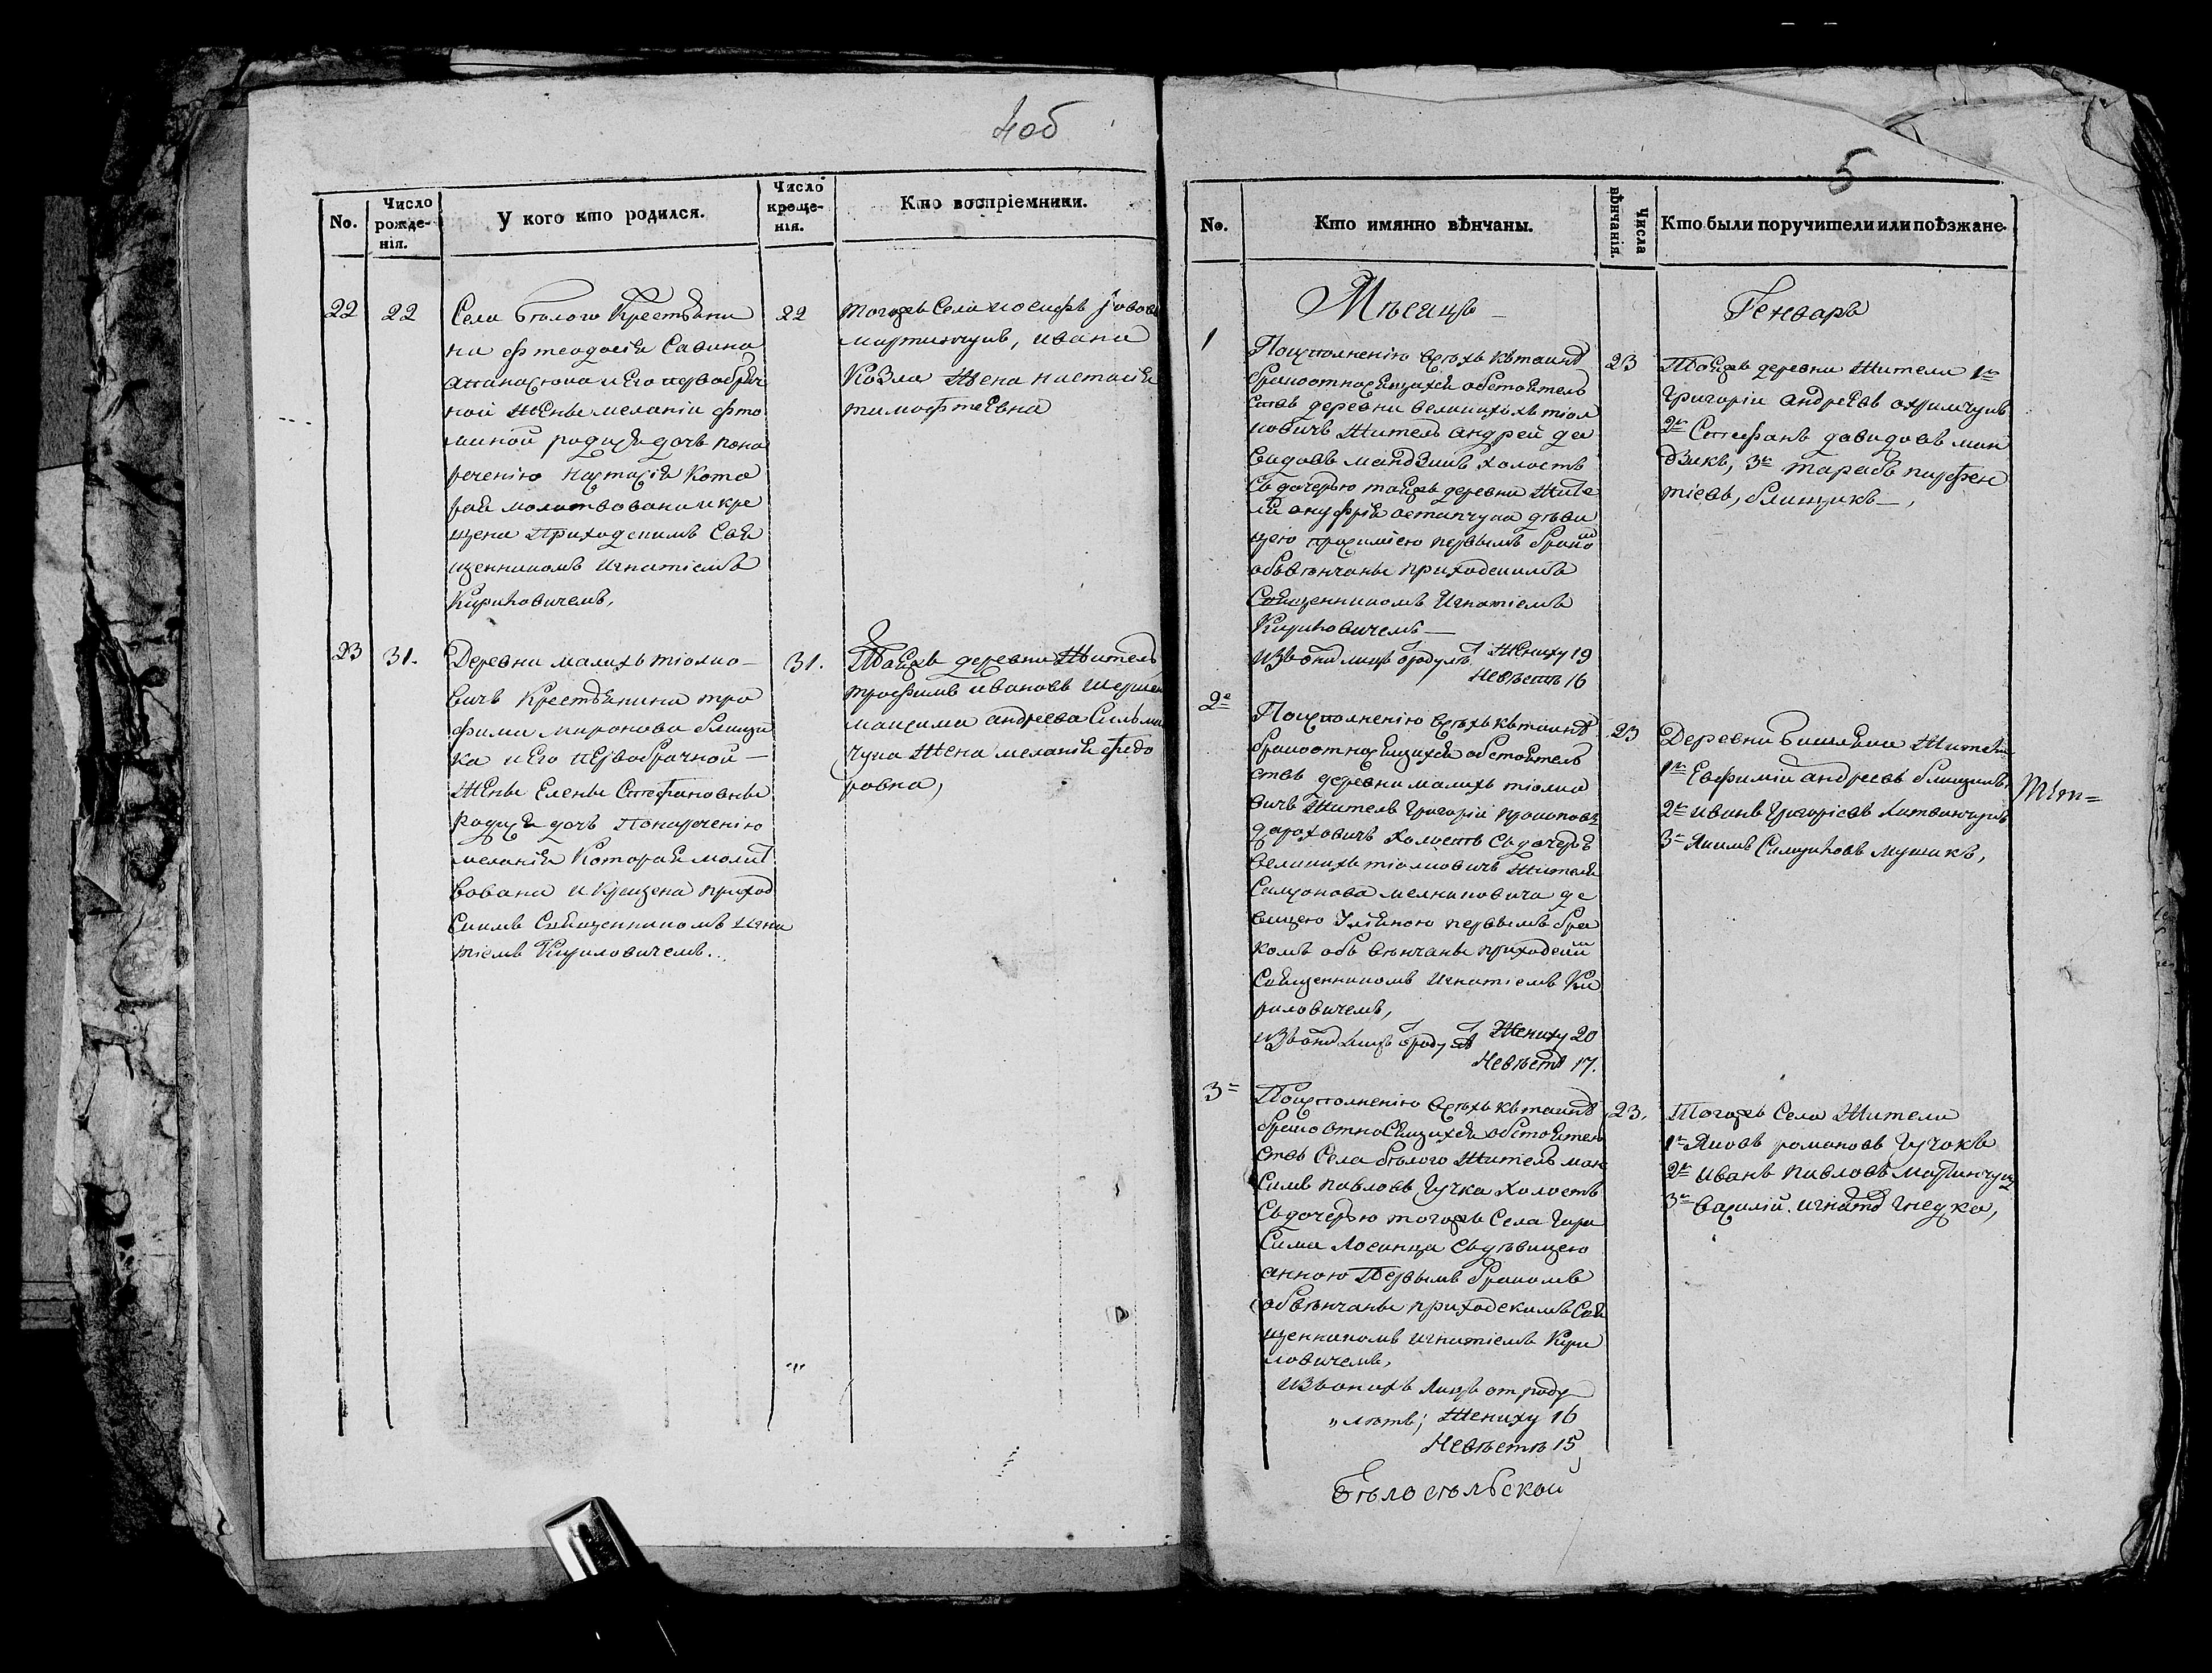 4об
No.
Число рожде-нія.
У кого кто родился.
Число креще-нія.
Кто воспріемники.
22
22
Села бѣлого Крестьяни
на фтеодосія Савина
апанасюка и Его первобрач
ной Жены меланіи фто
миной родися дочь пона
реченію настасія Кото
рая молитвована и кре
щена Приходскимъ Свя
щенникомъ Игнатіемъ
Кириловичемъ,
22
тогожъ Села иосифъ
мартинчукъ, ивана
Козла Жена настасія
тимофтеѣвна
23
31.
Деревни малихъ тіолко–
вичъ Крестьянина тро
фима миронова блищи
ка и Его первобрачной–
Жены Елены Стефановны
родися дочь Понареченію
меланія Которая молит
вована и Крещена приход
скимъ Священникомъ игна
тіемъ Кириловичемъ..
31.
Тояжъ деревни Житель
трофимъ ивановъ
максима андреева Сильма
чука Жена меланія федо
ровна,
5
No.
Кто имянно вѣнчаны.
Числа вѣнчанія.
Кто были поручители или поѣзжане.
Мѣсяцъ –
Генварь
1
Поисполненію всѣхъ къ таинѣ
брака относящихся обстоятель
ствъ деревни великихъ тіол
ковичъ Житель андрей да
видовъ мандзикъ холостъ
Съ дочерью тояжъ деревни Жите
ля ануфрія остапчука дѣви
цею первымъ брако
обвѣнчаны приходскимъ
Священникомъ Игнатіемъ
Кириловичемъ –
изъ они лицъ родулѣ Жениху 19
Невѣстѣ 16
23
Тояжъ деревни Жители 1й
Григорій андреѣвъ
2й Стефанъ давидовъ ман
дзикъ, 3й тарасъ парфен
тіевъ, блищикъ –,
2е
Поисполненію всѣхъ къ таинѣ
брака относящихся обстоятель
ствъ деревни малихъ тіолко
вичъ Житель Григорій прокоповъ
дароховичъ холостъ Съ дочерью
великихъ тіолковичъ Жителя
Самсонова мелниковича де
вицею Уліяною первымъ бра
комъ обвѣнчаны приходским
Священникомъ Игнатіемъ Ки
риловичемъ,
изъ они лицъ родулѣ Жениху 20
Невѣстѣ 17.
23
Деревни Жители
1й Евфимій андреевъ блищикъ,
2й иванъ Григорієвъ литвинчукъ
3й Якимъ Самуиловъ мушикъ,
3=
Поисполненію всѣхъ къ таинѣ
брака относящихся обстоятель
ствъ Села бѣлого Житель мак
симъ павловъ Гучка холостъ
Съ дочерью тогожъ Села Гара
сима Лосинца Съ дѣвицею
анною Первымъ бракомъ
обвѣнчаны приходскимъ Свя
щенникомъ игнатіемъ Кири
ловичемъ,
изъ онихъ лицъ от роду
„лѣтъ; Жениху 16
Невѣстѣ 15,
23.
Тогожъ Села Жители
1й Яковъ романовъ Гучокъ
2й иванъ павловъ мартинчукъ
3й Василій игнатъ
бѣлосѣльской